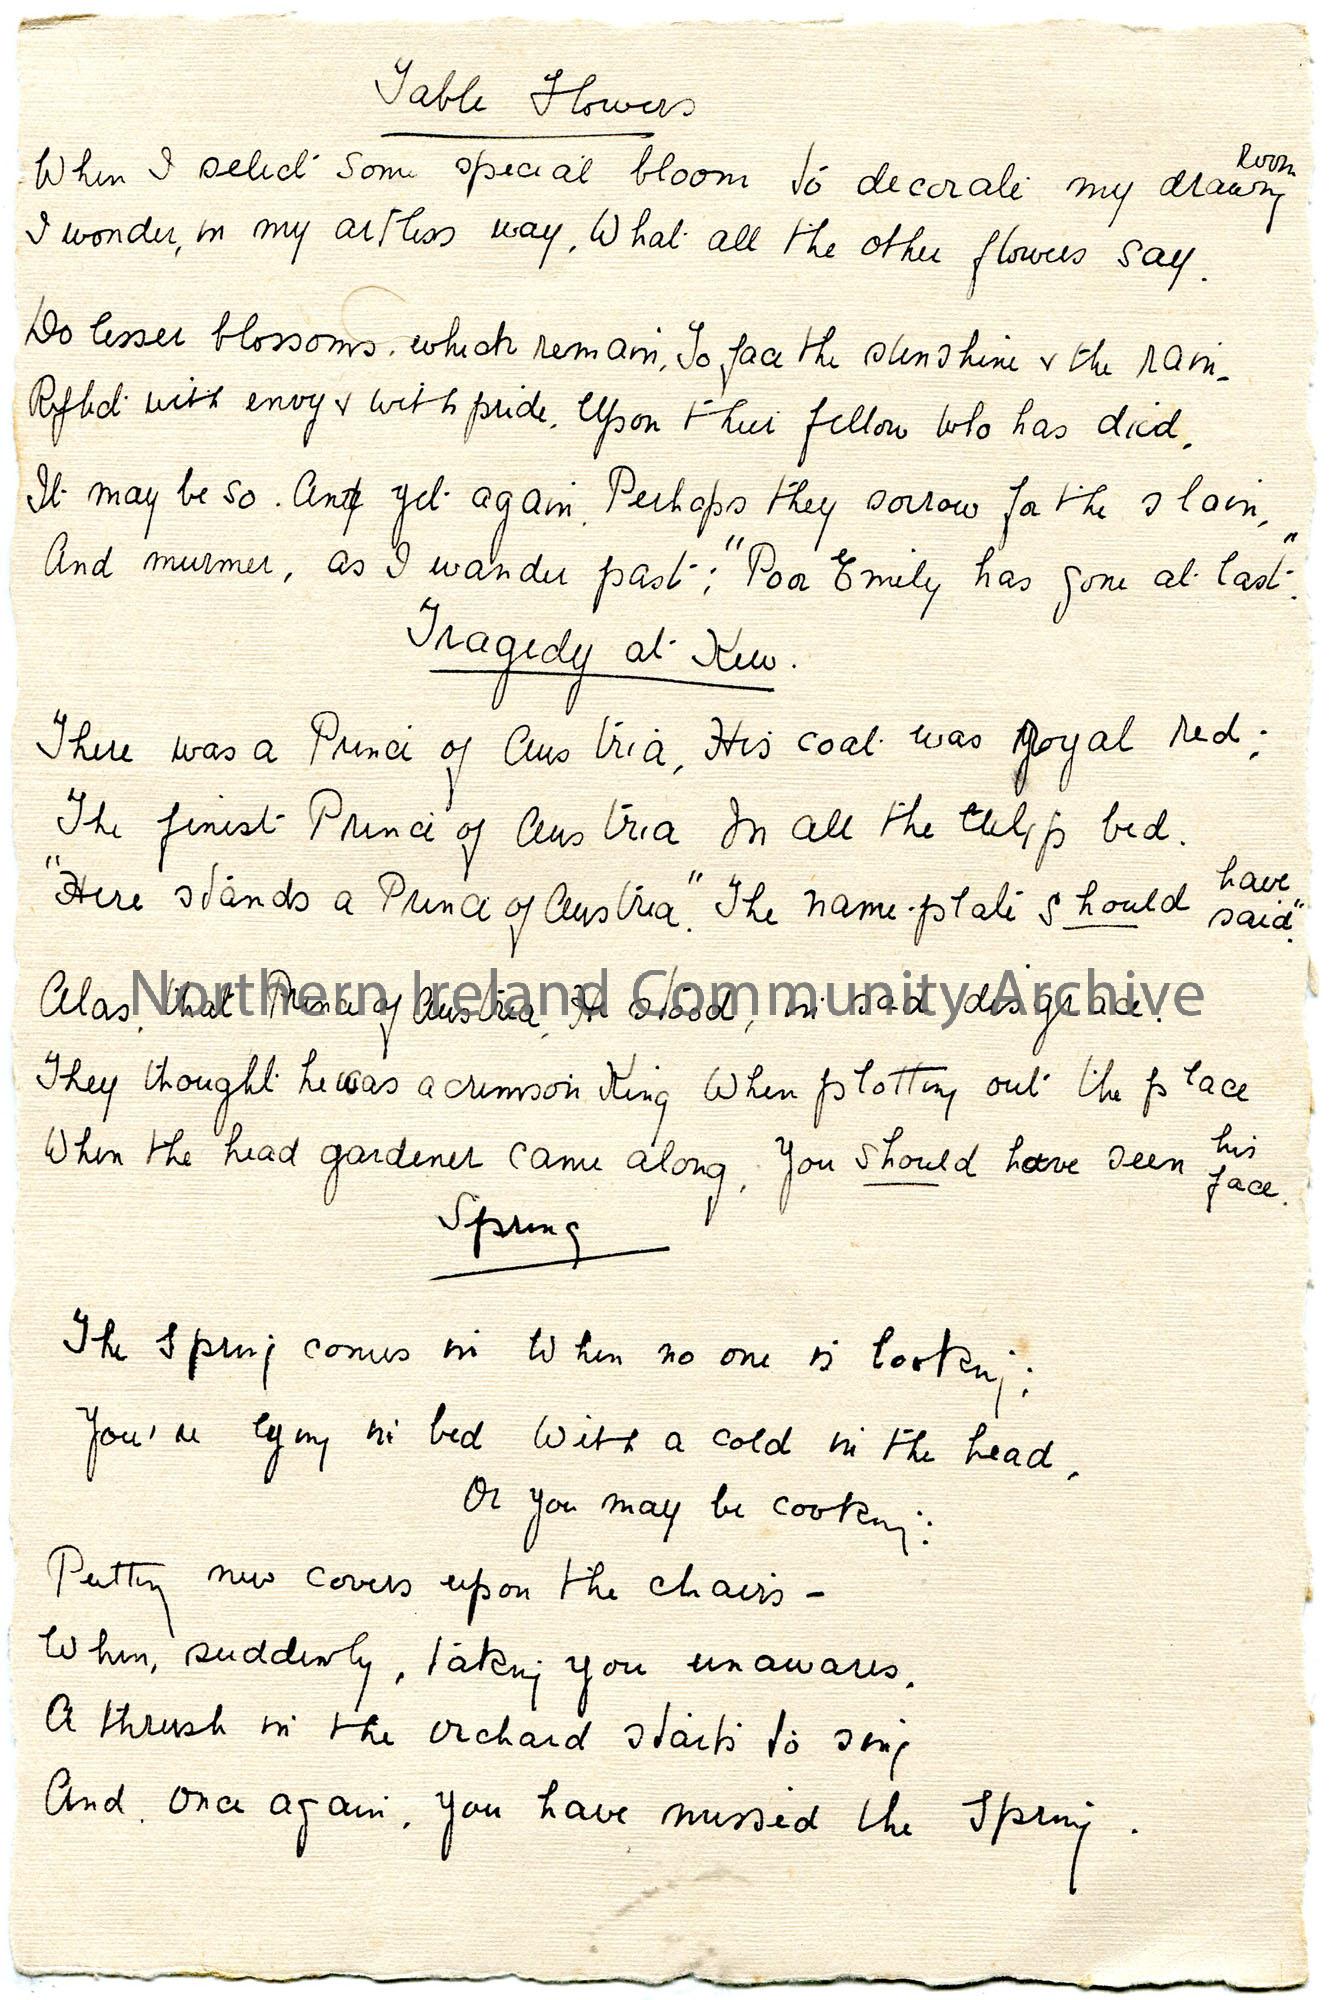 Table Flowers
When I select some special bloom to decorate my drawing Room
I wonder, in my artless way, What all the other flowers say.
Do lesser blossoms. which remain, To face the sunshine & the rain_
Reflect with envy & with pride, Upon their fellow who has died,
It may be so. And yet again, Perhaps they sorrow for the slain,
And murmer, as I wander past; "Poor Emily has gone at last".
Tragedy at Kew.
There was a Prince of Austria, His coat was royal red;
The finest Prince of Austria In all the tulip bed.
"Here stands a Prince of Austria". The name-plate should have said".
Alas, that Prince of Austria, He stood, in sad disgrace.
They thought he was a crimson King When plotting out the place
When the head gardener came along, You should have seen his face.
Spring
The Spring comes in When no one is looking;
You're lying in bed With a cold in the head,
Or you may be cooking;
Putting new covers upon the chairs –
When, suddenly, taking you unawares,
A thrush in the orchard starts to sing
And, once again, you have missed the Spring.
Northern Ireland Community Archive